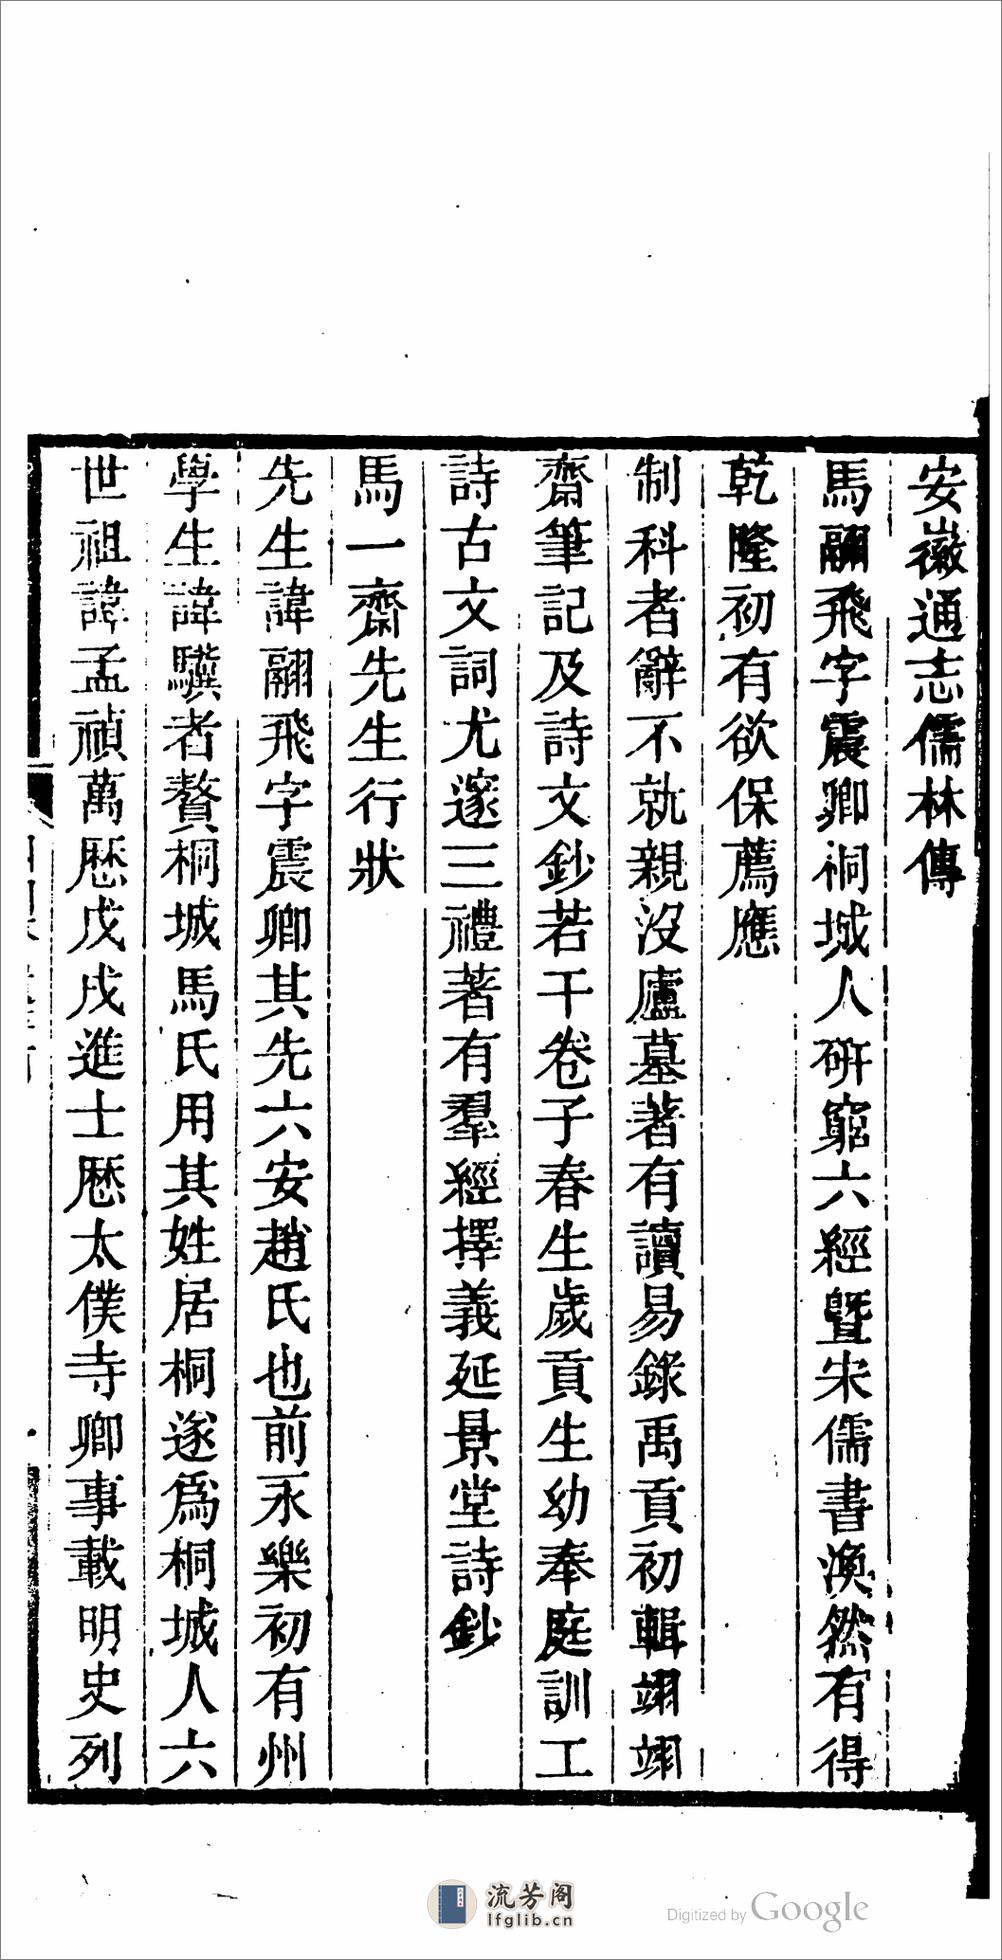 安徽通志儒林傳
馬翮飛字震卿桐城人研窮六經暨宋儒書渙然有得
乾隆初有欲保薦應
制科者辭不就親沒廬墓著有讀易錄禹貢初輯翊翊
齋筆記及詩文鈔若干卷子春生歲貢生幼奉庭訓工
詩古文詞尤邃三禮著有羣經擇義延景堂詩鈔
馬一齋先生行狀
先生諱翮飛字震卿其先六安趙氏也前永樂初有州
學生諱驥者贅桐城馬氏用其姓居桐遂爲桐城人六
世祖諱孟禎萬歷戊戌進士歷太僕寺卿事載明史列
流芳阁
lfglib.cn
Digitized by Google